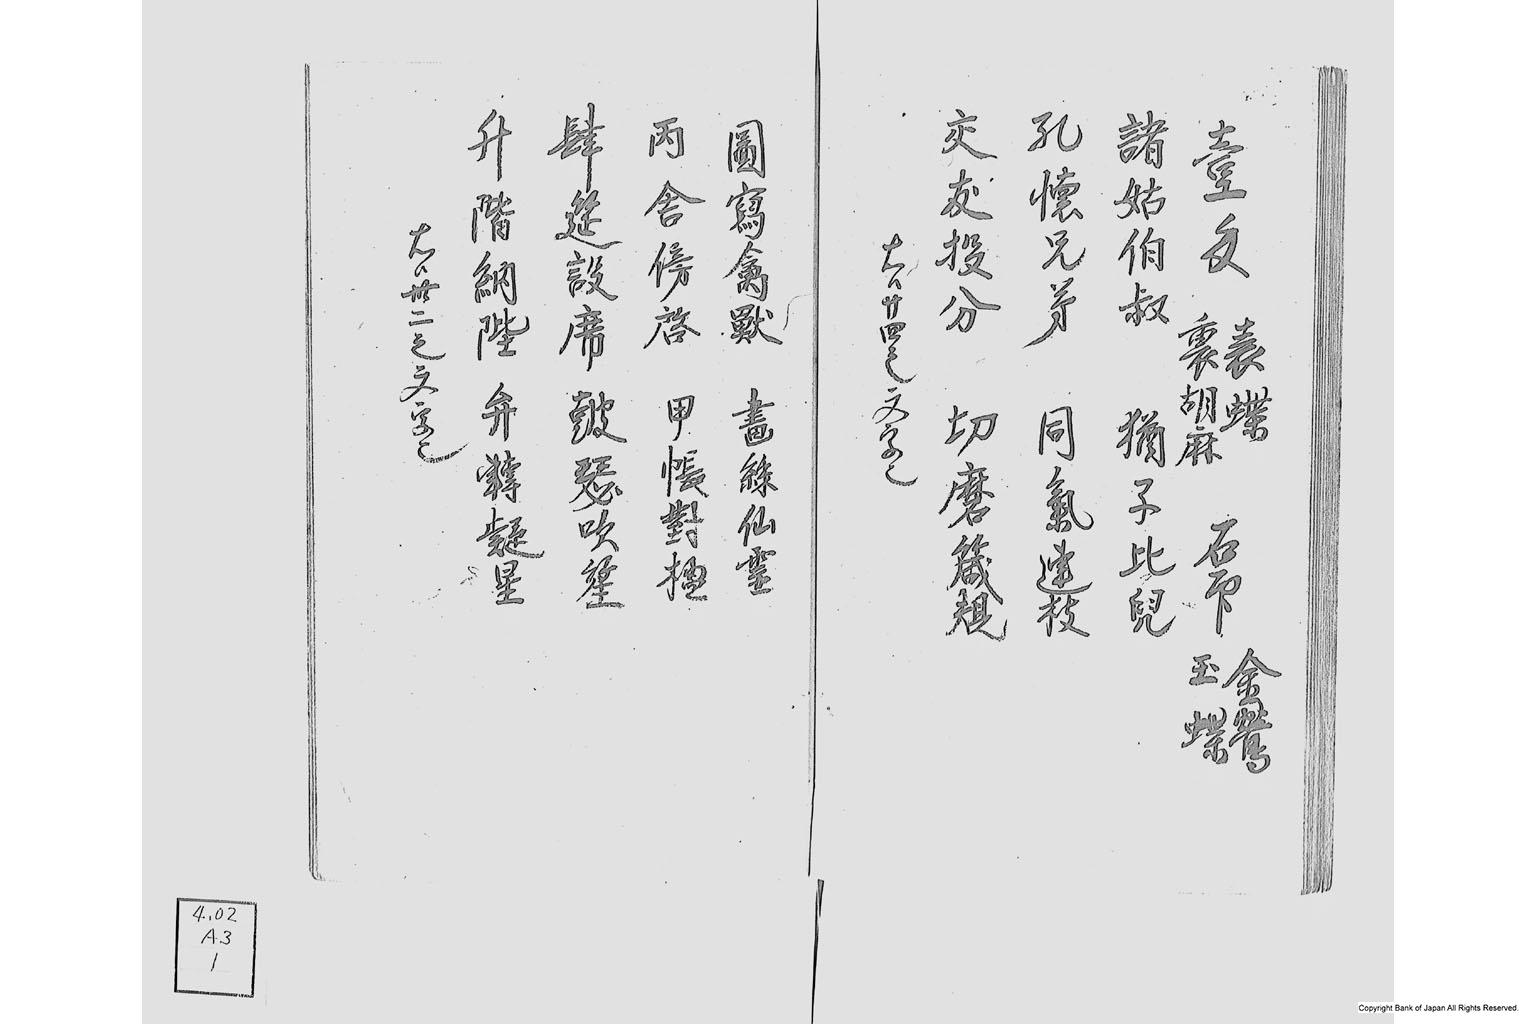 壹文 表蝶 裏胡麻 石印 金鶯 玉蝶
諸姑伯叔 猶子比兒
孔懷兄弟 同氣連枝
交友投分 切磨箴規
右八廿四毛文字也
圖寫禽獸 畵綵仙靈
丙舍傍啓 甲帳對楹
肆筵設席 皷瑟吹笙
升階納陛 弁轉疑星
右八卅二毛文字也
4.02
A3
1
Copyright Bank of Japan All Rights Reserved.